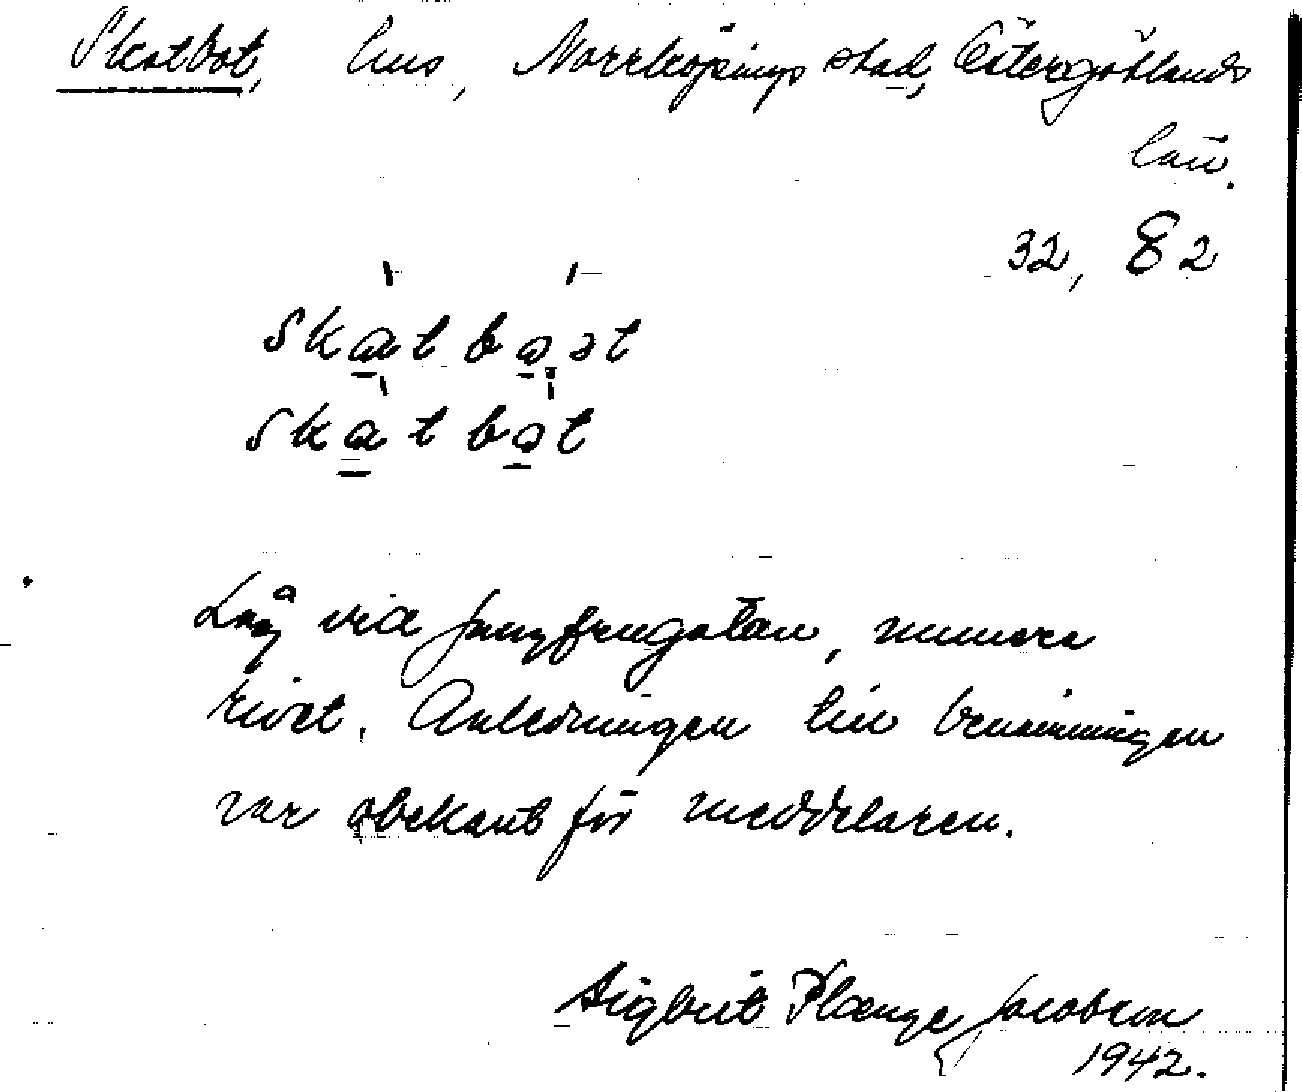 Skatbot, hus, Norrköpings stad, Östergötlands
län.
32, 82
skatboət
skatbot
Låg vid Jungfrugatan, numera
rivet. Anledningen till benämningen
var obekant för meddelaren.
Sigbrit Plænge Jacobson
1942.